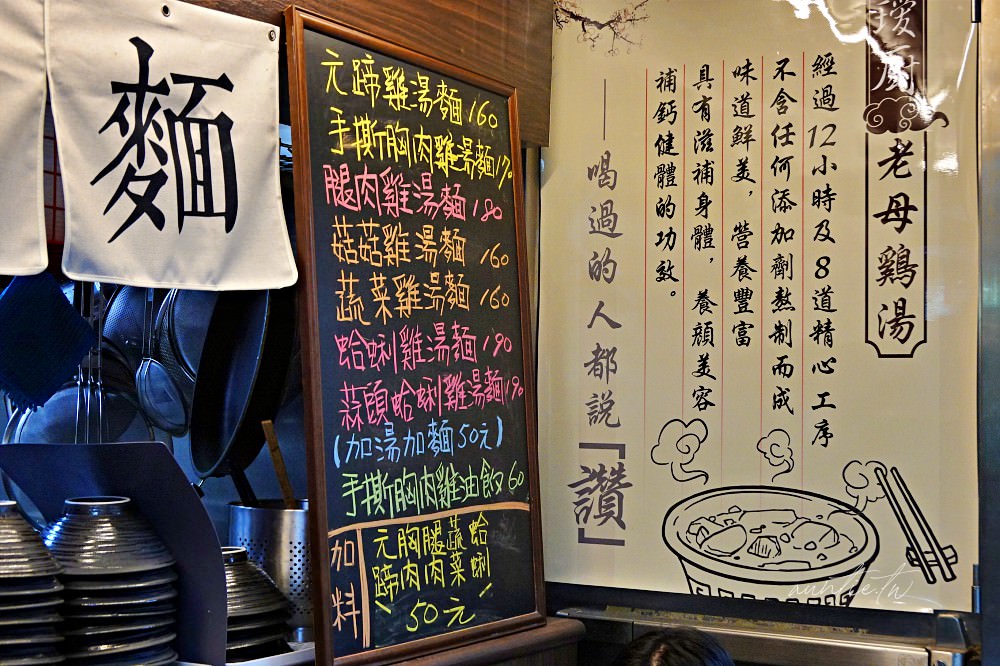 麵
元蹄雞湯麵 160
手撕胸肉雞湯麵 170
腿肉雞湯麵 180
菇菇雞湯麵 160
蔬菜雞湯麵 160
蛤蜊雞湯麵 190
蒜頭蛤蜊雞湯麵 190
(加湯加麵50元)
手撕胸肉雞油飯 60
加料
元蹄
胸肉
腿肉
蔬菜
蛤蜊
50元
老母鷄湯
經過12小時及8道精心工序
不含任何添加劑熬制而成
味道鮮美，營養豐富
具有滋補身體，養顏美容
補鈣健體的功效。
——喝過的人都說「讚」